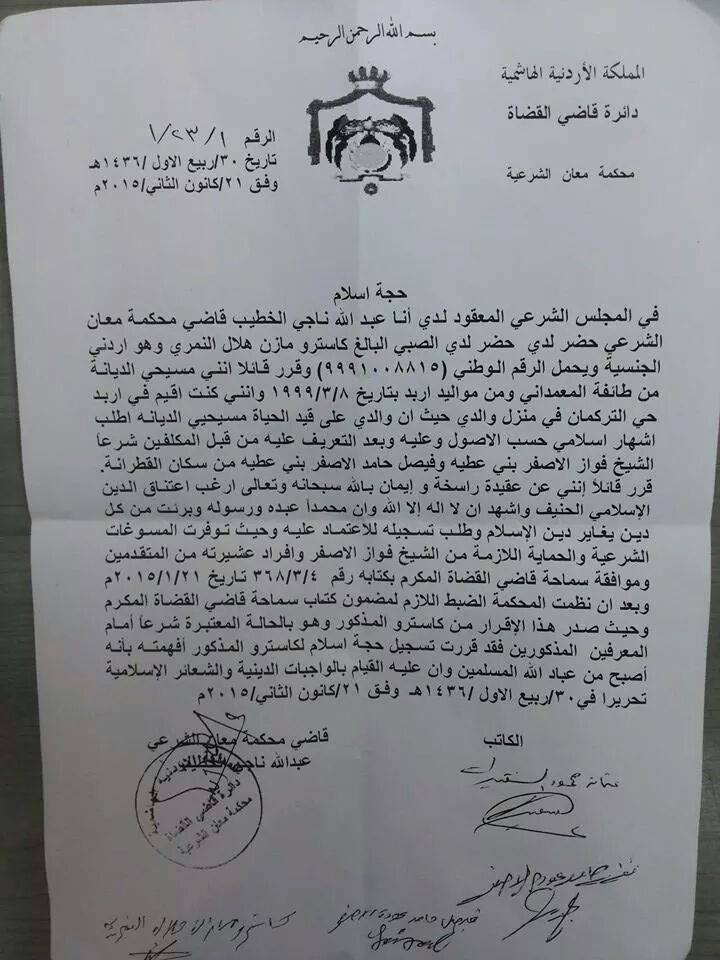 بسم الله الرحمن الرحيم
المملكة الأردنية الهاشمية
دائرة قاضي القضاة
محكمة معان الشرعية
الرقم ١/٢٣/١
تاريخ ٣٠/ربيع الاول /١٤٣٦هـ
وفق ٢١/كانون الثاني/٢٠١٥م
حجة اسلام
في المجلس الشرعي المعقود لدي أنا عبد الله ناجي الخطيب قاضي محكمة معان
الشرعي حضر لدي حضر لدي الصبي البالغ كاسترو مازن هلال النمري وهو اردني
الجنسية ويحمل الرقم الوطني (٩٩٩١٠٠٨٨١٥) وقرر قائلا انني مسيحي الديانة
من طائفة المعمداني ومن مواليد اربد بتاريخ ١٩٩٩/٣/٨ وانني كنت اقيم في اربد
حي التركمان في منزل والدي حيث ان والدي على قيد الحياة مسيحيي الديانه اطلب
اشهار اسلامي حسب الاصول وعليه وبعد التعريف عليه من قبل المكلفين شرعاً
الشيخ فواز الاصفر بني عطيه وفيصل حامد الاصفر بني عطيه من سكان القطرانة.
قرر قائلاً إنني عن عقيدة راسخة و إيمان بالله سبحانه وتعالى ارغب اعتناق الدين
الإسلامي الحنيف واشهد ان لا اله إلا الله وان محمداً عبده ورسوله وبرئت من كل
دين يغاير دين الإسلام وطلب تسجيله للاعتماد عليه وحيث توفرت المسوغات
الشرعية والحماية اللازمة من الشيخ فواز الاصفر وافراد عشيرته من المتقدمين
وموافقة سماحة قاضي القضاة المكرم بكتابه رقم ٣٦٨/٣/٤ تاريخ ٢٠١٥/١/٢١م
وبعد ان نظمت المحكمة الضبط اللازم لمضمون كتاب سماحة قاضي القضاة المكرم
وحيث صدر هذا الإقرار من كاسترو المذكور وهو بالحالة المعتبرة شرعاً أمام
المعرفين المذكورين فقد قررت تسجيل حجة اسلام لكاسترو المذكور أفهمته بأنه
أصبح من عباد الله المسلمين وان عليه القيام بالواجبات الدينية والشعائر الإسلامية
تحريرا في٣٠/ربيع الاول /١٤٣٦هـ وفق ٢١/كانون الثاني/٢٠١٥م
الكاتب
قاضي محكمة معان الشرعي
عبدالله ناجي الخطيب
دائرة قاضي القضاة
محكمة معان الشرعية
فيصل حامد عودة الاصفر